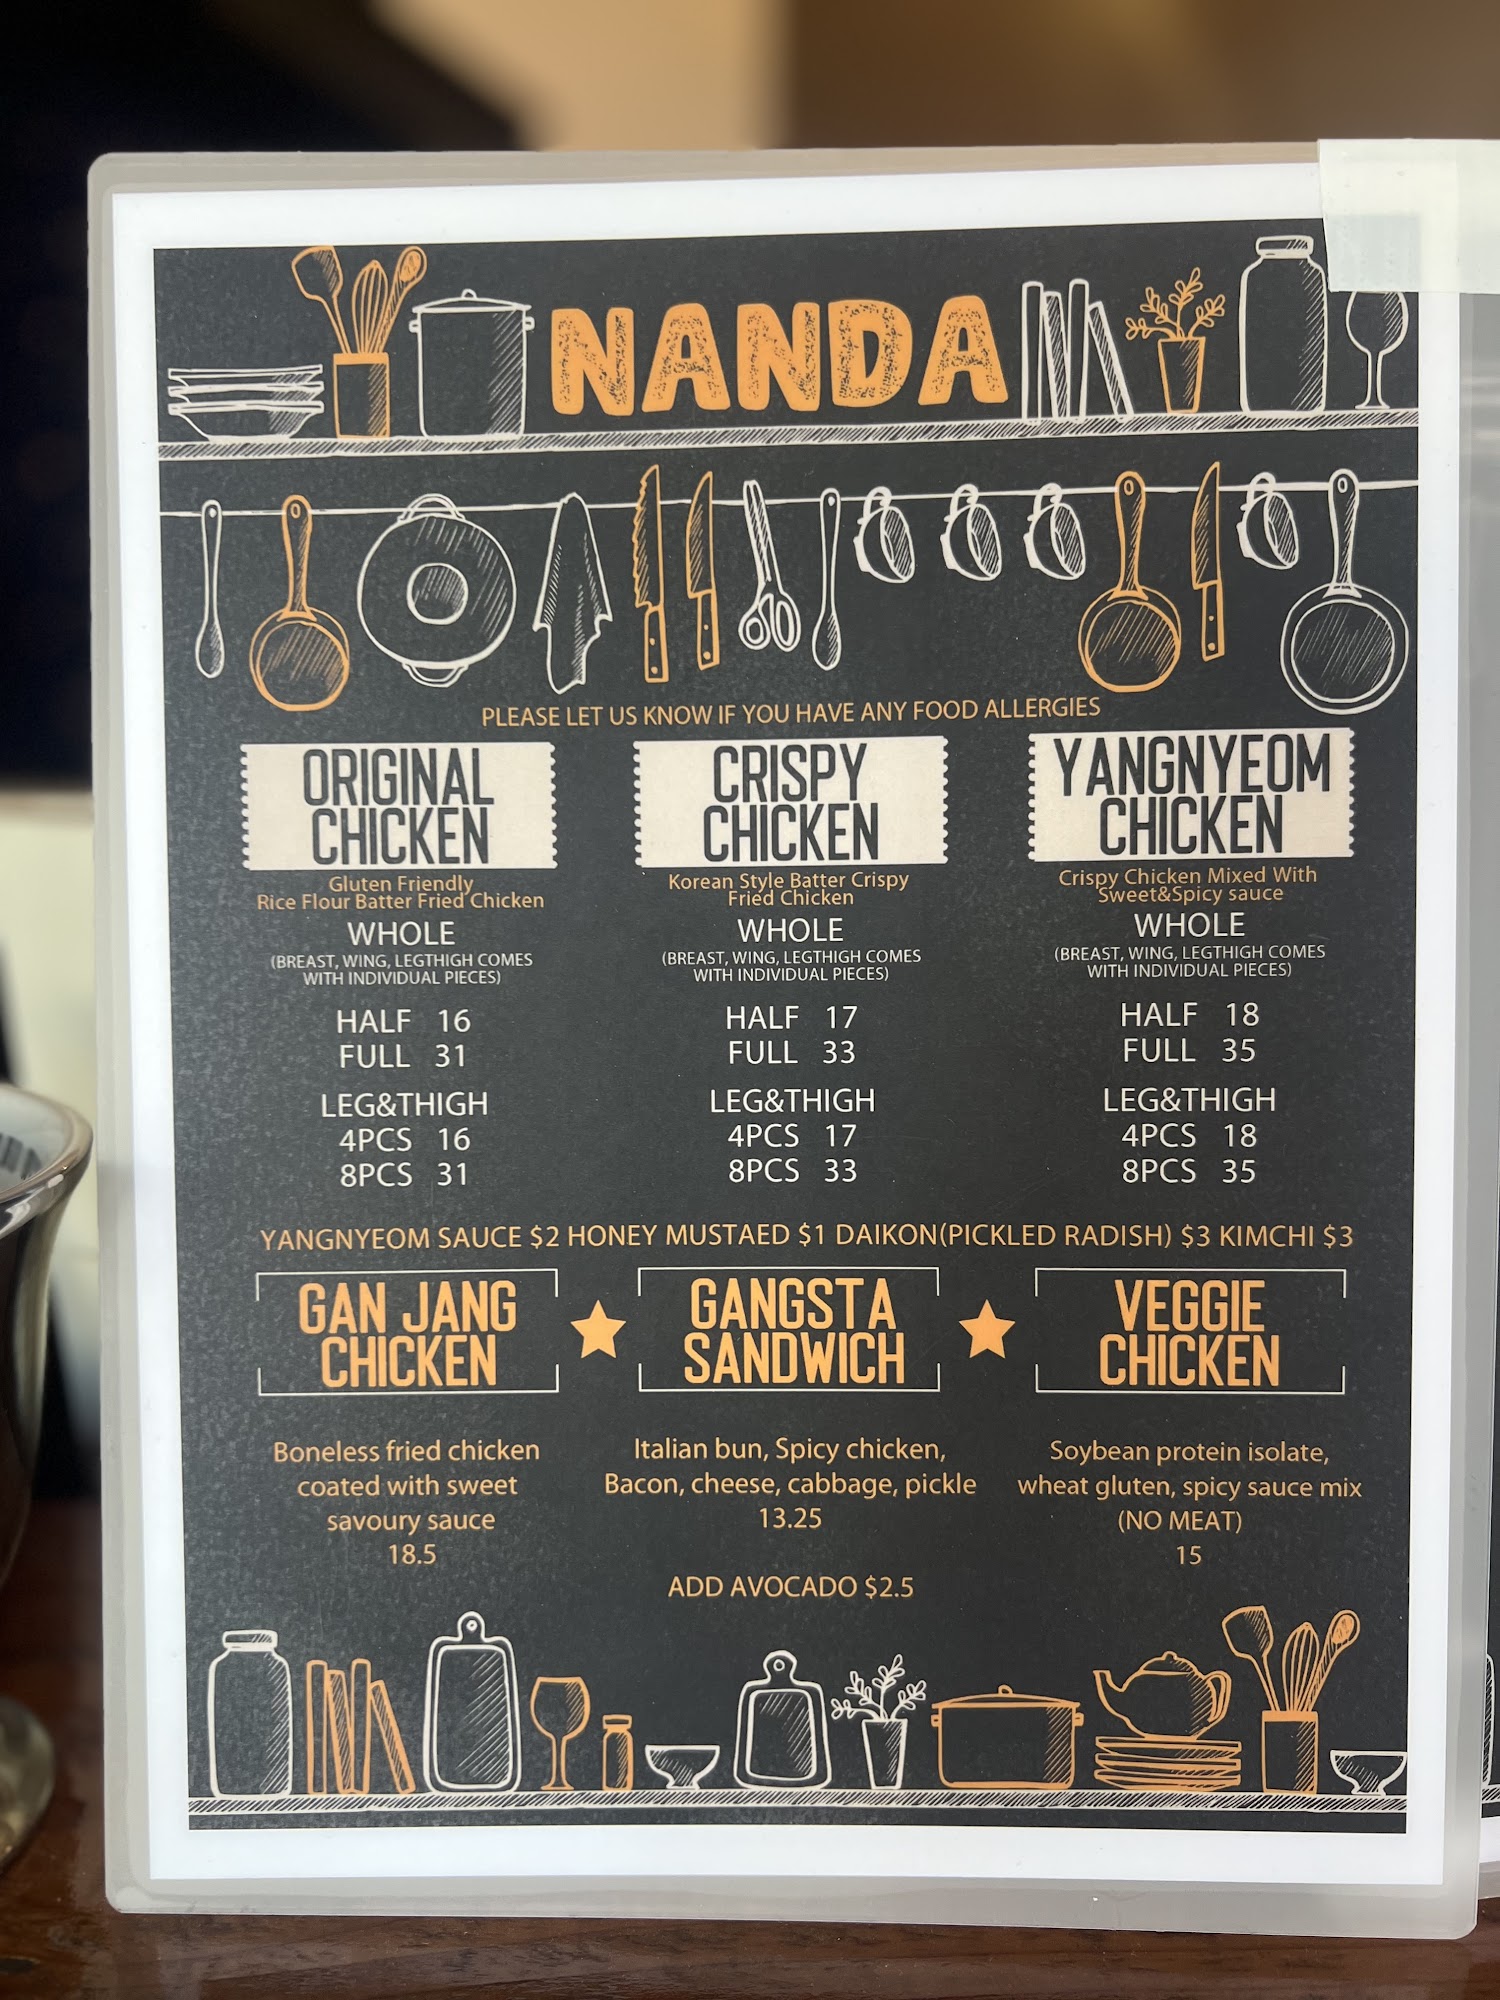 NANDA
PLEASE LET US KNOW IF YOU HAVE ANY FOOD ALLERGIES
ORIGINAL
CHICKEN
Gluten Friendly
Rice Flour Batter Fried Chicken
WHOLE
(BREAST, WING, LEGTHIGH COMES
WITH INDIVIDUAL PIECES)
HALF 16
FULL 31
LEG&THIGH
4PCS 16
8PCS 31
CRISPY
CHICKEN
Korean Style Batter Crispy
Fried Chicken
WHOLE
(BREAST, WING, LEGTHIGH COMES
WITH INDIVIDUAL PIECES)
HALF 17
FULL 33
LEG&THIGH
4PCS 17
8PCS 33
YANGNYEOM
CHICKEN
Crispy Chicken Mixed With
Sweet&Spicy sauce
WHOLE
(BREAST, WING, LEGTHIGH COMES
WITH INDIVIDUAL PIECES)
HALF 18
FULL 35
LEG&THIGH
4PCS 18
8PCS 35
YANGNYEOM SAUCE $2 HONEY MUSTAED $1 DAIKON(PICKLED RADISH) $3 KIMCHI $3
GAN JANG
CHICKEN
Boneless fried chicken
coated with sweet
savoury sauce
18.5
GANGSTA
SANDWICH
Italian bun, Spicy chicken,
Bacon, cheese, cabbage, pickle
13.25
ADD AVOCADO $2.5
VEGGIE
CHICKEN
Soybean protein isolate,
wheat gluten, spicy sauce mix
(NO MEAT)
15